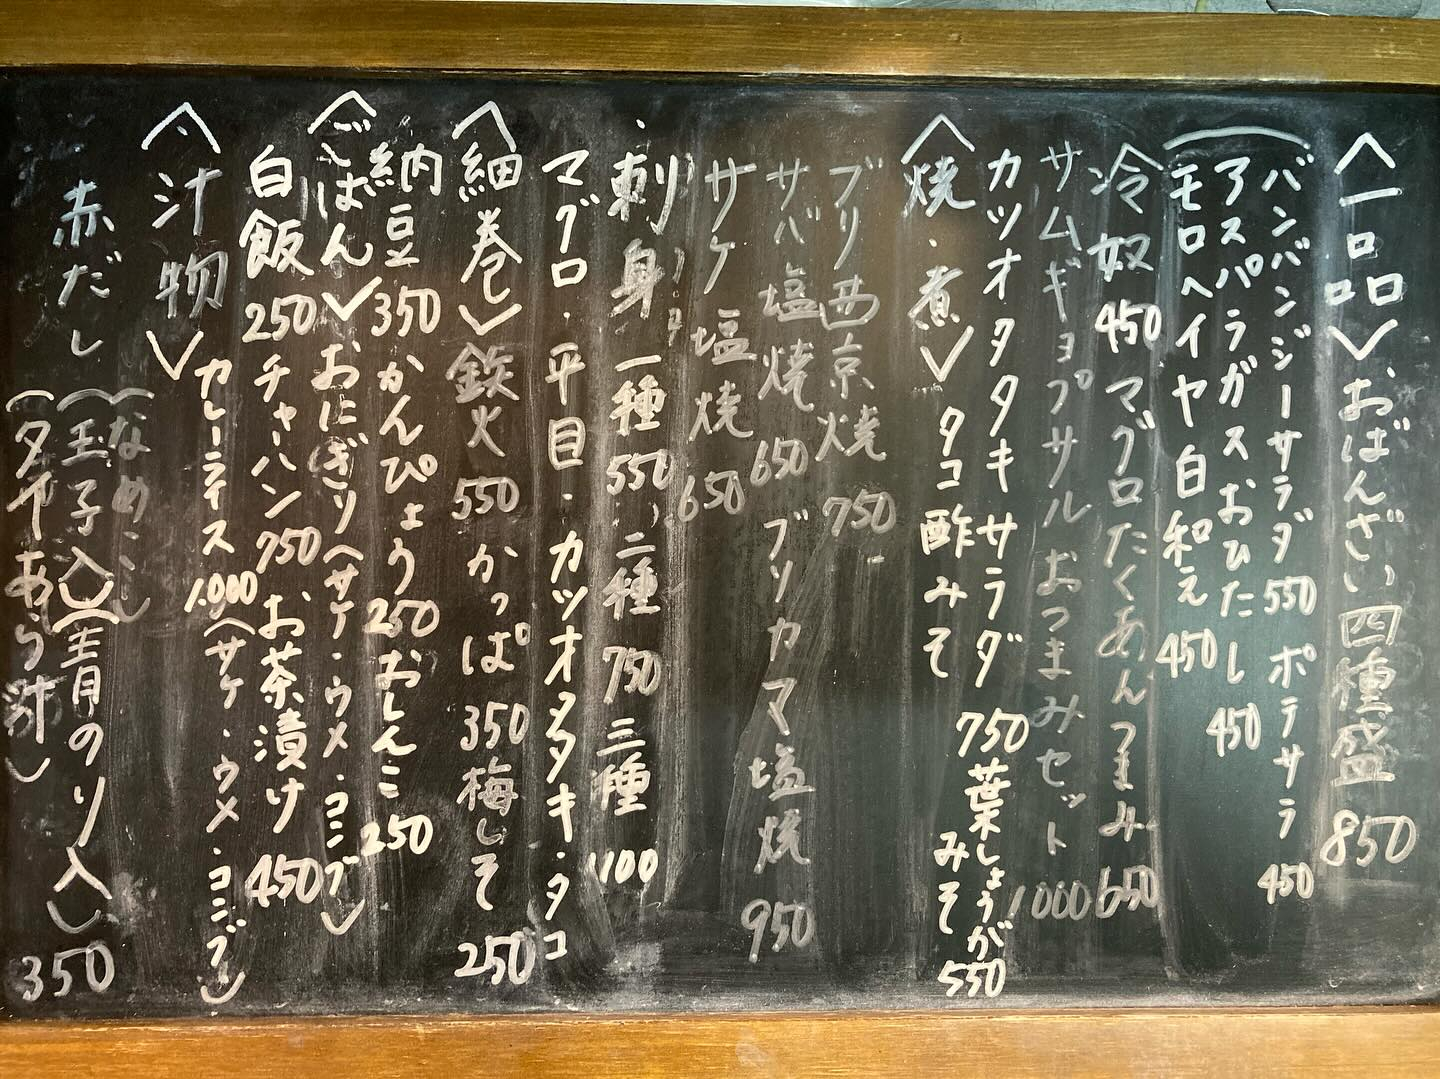 〈一品〉おばんざい四種盛 850
バンバンジーサラダ 550 ポテサラ 450
アスパラガスおひたし 450
モロヘイヤ白和え 450
冷奴 450 マグロたくあんつまみ 650
サムギョプサルおつまみセット 1000
カツオタタキサラダ 750 葉しょうがみそ 550
〈焼・煮〉タコ酢みそ
ブリ西京焼 750
サバ塩焼 650 ブリカマ塩焼 950
サケ塩焼 650
刺身 一種 550 二種 750 三種 1100
マグロ・平目・カツオタタキ・タコ
〈細巻〉鉄火 550 かっぱ 350 梅しそ 250
納豆 350 かんぴょう 250 おしんこ 250
〈ごはん〉おにぎり〈サケ・ウメ・コンブ〉
白飯 250 チャーハン 750 お茶漬け 450
カレーライス 1.000 (サケ・ウメ・コンブ)
〈汁物〉
赤だし (なめこ)
(玉子入)(青のり入) 350
(タイあら汁)